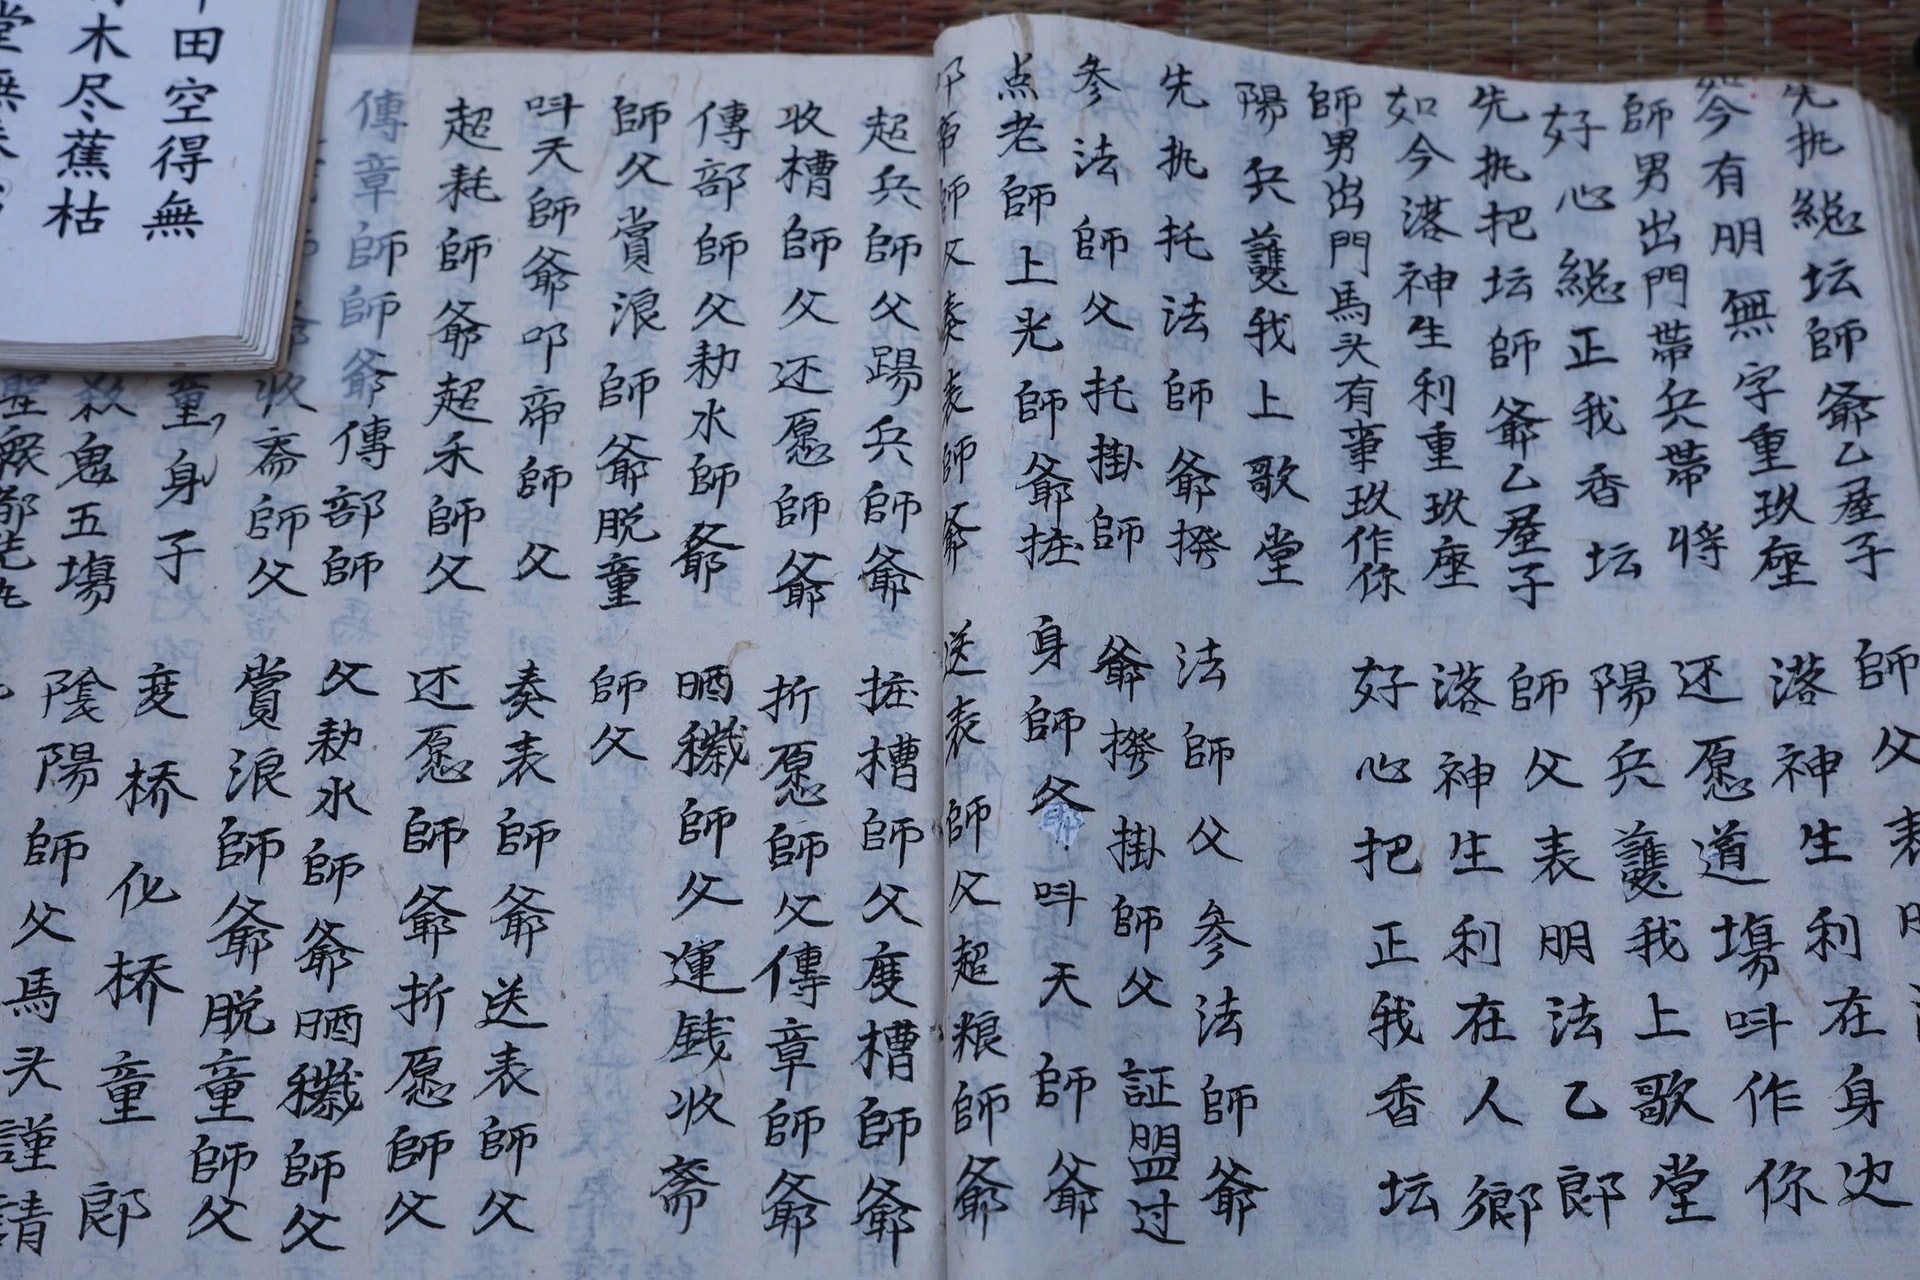 先执総坛師爺乙屋子 師父表
如今有朋無字重玖座 落神生利在身边
師男出門帶兵帶将 还愿道塲呌作你
好心総正我香坛 陽兵護我上歌堂
先执把坛師爺乙屋子 師父表朋法乙郎
如今落神生利重玖座 落神生利在人鄉
師男出門馬头有事玖作你 好心把正我香坛
陽兵護我上歌堂
先执托法師爺撥 法師父参法師爺
参法師父托掛師 爺撥掛師父証盟过
点老師上光師爺拞 身師爷呌天師爺
帝師父奏表師爺 送表師父超粮師爺
超兵師父踢兵師爺 拞槽師父度槽師爺
收槽師父还愿師爺 折愿師父傳章師爺
傳部師父勅水師爺 晒穢師父運銭收斋
師父賞浪師爺脱童 師父
呌天師爺叩帝師父 奏表師爺送表師父
超耗師爺超禾師父 还愿師爺折愿師父
傳章師師爺傳部師 父勅水師爺晒穢師父
收斋師父 賞浪師爺脱童師父
童身子 变桥化桥童郎
殺鬼五塲 陰陽師父馬头謹請
田空得無
木尽蕉枯